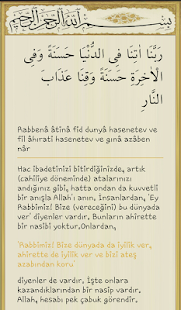 بِسْمِ اللهِ الرَّحْمٰنِ الرَّحِيمِ
رَبَّنَا اٰتِنَا فِى الدُّنْيَا حَسَنَةً وَفِى
الْاٰخِرَةِ حَسَنَةً وَقِنَا عَذَابَ
النَّارِ
Rabbenâ âtinâ fid dunyâ hasenetev ve
fil âhırati hasenetev ve gınâ azâben
nâr
Hac ibadetinizi bitirdiğinizde, artık
(cahiliye döneminde) atalarınızı
andığınız gibi, hatta ondan da kuvvetli
bir anışla Allah'ı anın. İnsanlardan, 'Ey
Rabbimiz! Bize (vereceğini) bu dünyada
ver' diyenler vardır. Bunların ahirette
bir nasibi yoktur. Onlardan,
'Rabbimiz! Bize dünyada da iyilik ver,
ahirette de iyilik ver ve bizi ateş
azabından koru'
diyenler de vardır. İşte onlara
kazandıklarından bir nasip vardır.
Allah, hesabı pek çabuk görendir.